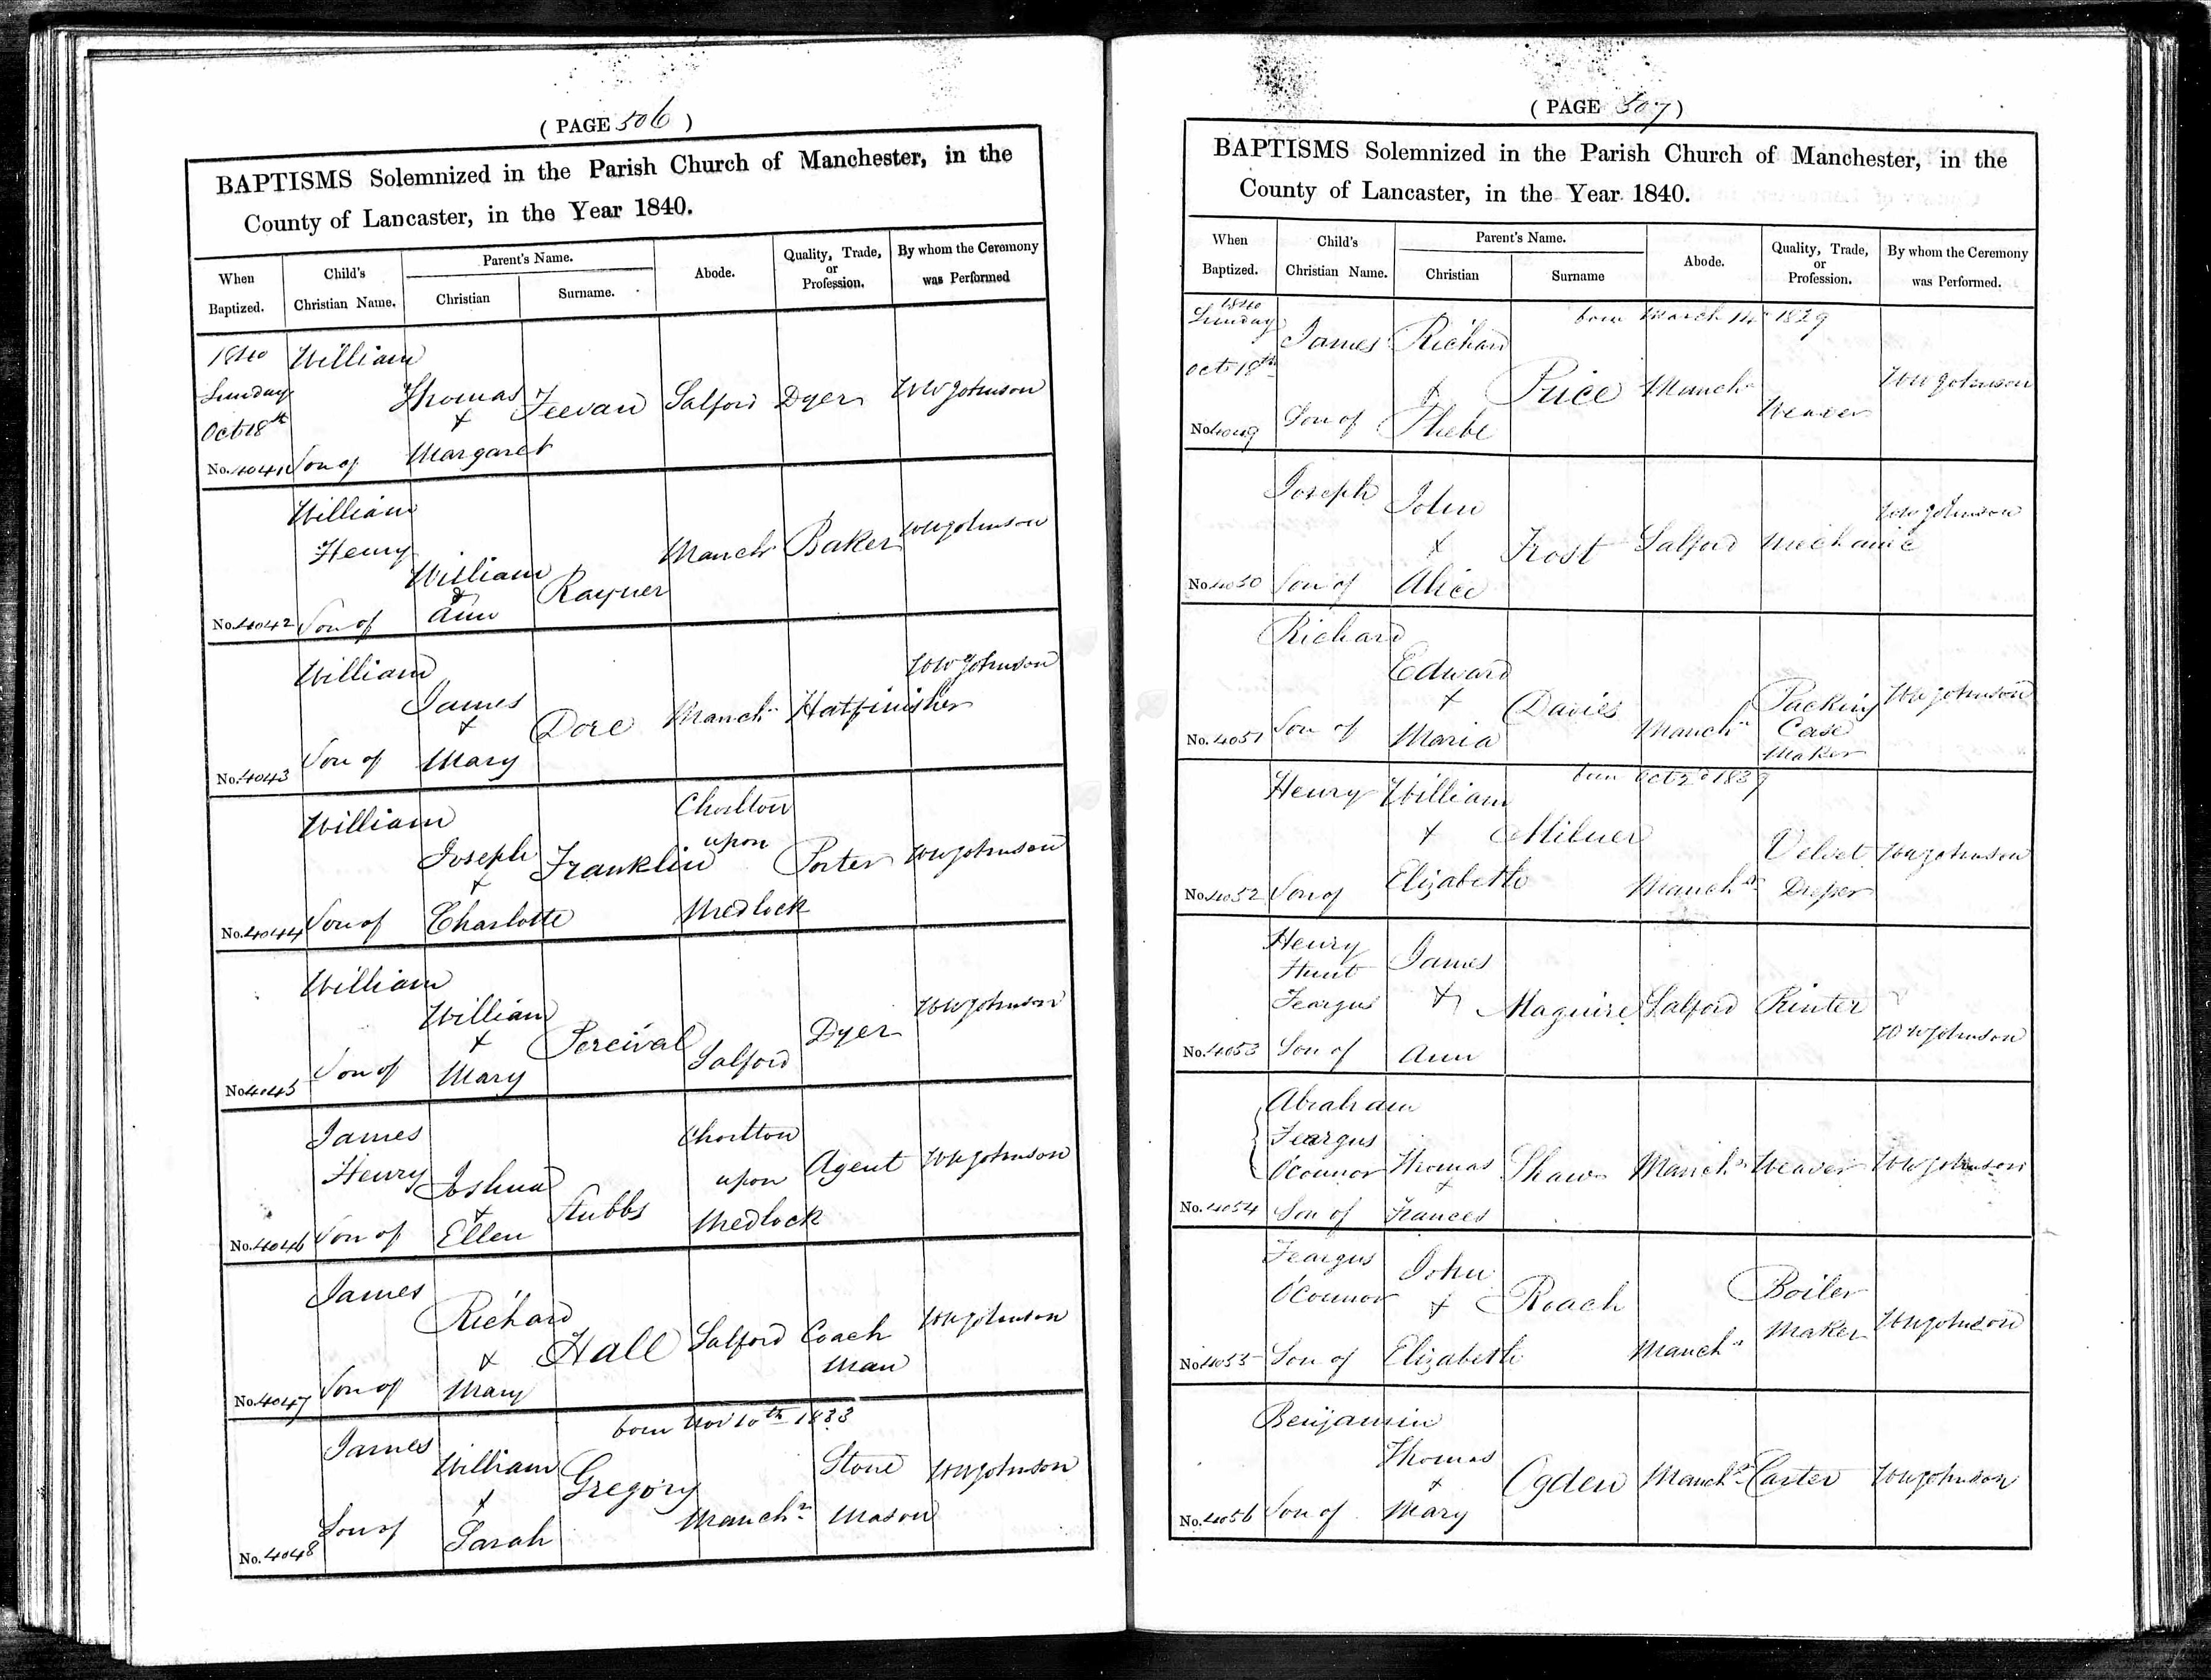 ( PAGE 506 )
BAPTISMS Solemnized in the Parish Church of Manchester, in the
County of Lancaster, in the Year 1840.
When Baptized.
Child's Christian Name.
Parent's Name.
Christian
Surname.
Abode.
Quality, Trade, or Profession.
By whom the Ceremony was Performed
1840
Sunday
Oct 18th
No. 4041
William
Son of
Thomas
+
Margaret
Teevan
Salford
Dyer
WW Johnson
No. 4042
William
Henry
Son of
William
&
Ann
Rayner
Manchr
Baker
WW Johnson
No. 4043
William
Son of
James
+
Mary
Dore
Manchr
Hatfinisher
WW Johnson
No. 4044
William
Son of
Joseph
+
Charlotte
Franklin
Chorlton
upon
Medlock
Porter
WW Johnson
No. 4045
William
Son of
William
+
Mary
Percival
Salford
Dyer
WW Johnson
No. 4046
James
Henry
Son of
Joshua
+
Ellen
Stubbs
Chorlton
upon
Medlock
Agent
WW Johnson
No. 4047
James
Son of
Richard
&
Mary
Hall
Salford
Coach
Man
WW Johnson
born Nov 10th 1833
No. 4048
James
Son of
William
+
Sarah
Gregory
Manchr
Stone
Mason
WW Johnson
( PAGE 507 )
BAPTISMS Solemnized in the Parish Church of Manchester, in the
County of Lancaster, in the Year 1840.
When Baptized.
Child's Christian Name.
Parent's Name.
Christian
Surname
Abode.
Quality, Trade, or Profession.
By whom the Ceremony was Performed.
1840
Sunday
Oct 18th
No. 4049
born March 14th 1829
James
Son of
Richard
&
Phebe
Price
Manchr
Weaver
WW Johnson
No. 4050
Joseph
Son of
John
+
Alice
Frost
Salford
Mechanic
WW Johnson
No. 4051
Richard
Son of
Edward
+
Maria
Davies
Manchr
Packing
Case
Maker
WW Johnson
born Oct 2d 1839
No. 4052
Henry
Son of
William
+
Elizabeth
Milner
Manchr
Velvet
WW Johnson
No. 4053
Henry
Hunt
Feargus
Son of
James
+
Ann
Maguire
Salford
Printer
WW Johnson
No. 4054
Abraham
Feargus
O'Connor
Son of
Thomas
+
Frances
Shaw
Manchr
Weaver
WW Johnson
No. 4055
Feargus
O'Connor
Son of
John
+
Elizabeth
Roach
Manchr
Boiler
Maker
WW Johnson
No. 4056
Benjamin
Son of
Thomas
+
Mary
Ogden
Manchr
Carter
WW Johnson